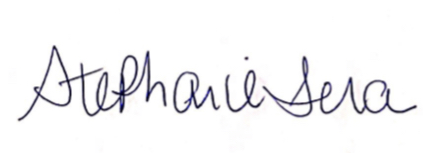 Stephanie Sera